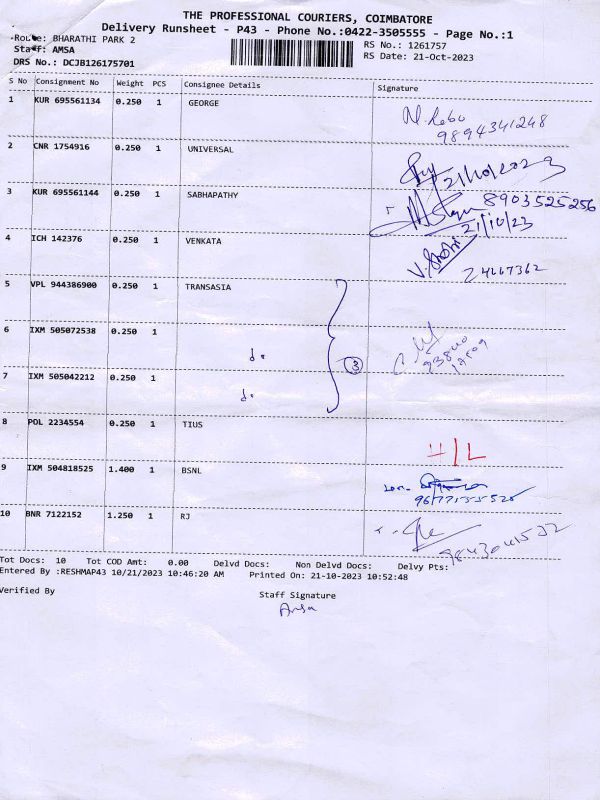 THE PROFESSIONAL COURIERS, COIMBATORE
Delivery Runsheet - P43 - Phone No.:0422-3505555 - Page No.:1
Route: BHARATHI PARK 2
RS No.: 1261757
Staff: AMSA
RS Date: 21-Oct-2023
DRS No.: DCJB126175701
S No Consignment No Weight PCS Consignee Details Signature
1 KUR 695561134 0.250 1 GEORGE
9894341248
2 CNR 1754916 0.250 1 UNIVERSAL
21/10/2023
3 KUR 695561144 0.250 1 SABHAPATHY 8903525256
21/10/23
4 ICH 142376 0.250 1 VENKATA
24667362
5 VPL 944386900 0.250 1 TRANSASIA
6 IXM 505072538 0.250 1
do
3
7 IXM 505042212 0.250 1
do
8 POL 2234554 0.250 1 TIUS
9 IXM 504818525 1.400 1 BSNL
10 BNR 7122152 1.250 1 RJ
Tot Docs: 10 Tot COD Amt: 0.00 Delvd Docs: Non Delvd Docs: Delvy Pts:
Entered By :RESHMAP43 10/21/2023 10:46:20 AM Printed On: 21-10-2023 10:52:48
Verified By Staff Signature
Amsa